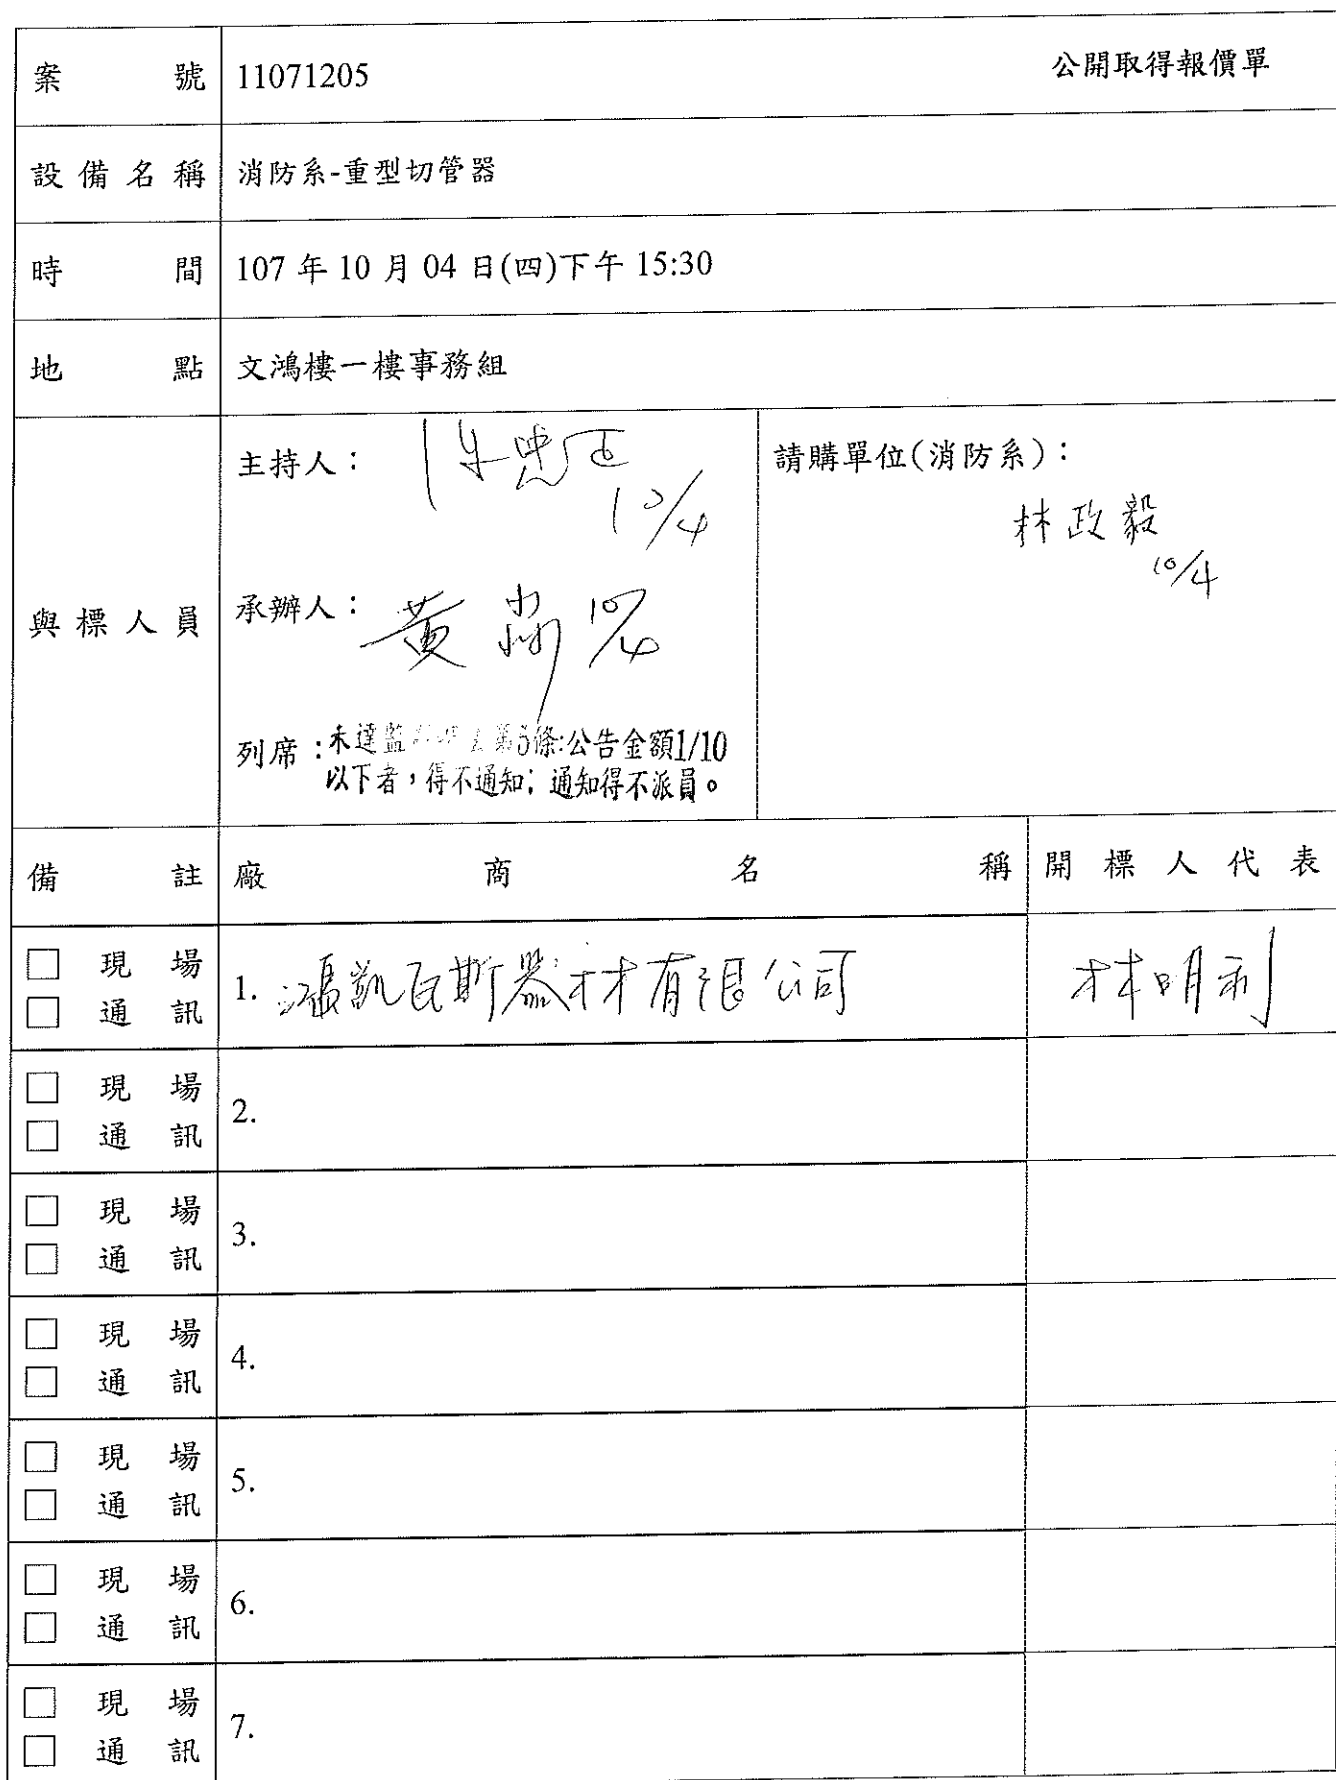 案號 11071205 公開取得報價單
設備名稱 消防系-重型切管器
時間 107 年 10 月 04 日(四)下午 15:30
地點 文鴻樓一樓事務組
與標人員
主持人：
10/4
承辦人：黃
10/4
列席：未達監 第5條:公告金額1/10
以下者，得不通知；通知得不派員。
請購單位(消防系)：
林政毅
10/4
備註 廠商名稱 開標人代表
□ 現場
□ 通訊
1. 凱瓦斯器材有限公司
林明利
□ 現場
□ 通訊
2.
□ 現場
□ 通訊
3.
□ 現場
□ 通訊
4.
□ 現場
□ 通訊
5.
□ 現場
□ 通訊
6.
□ 現場
□ 通訊
7.